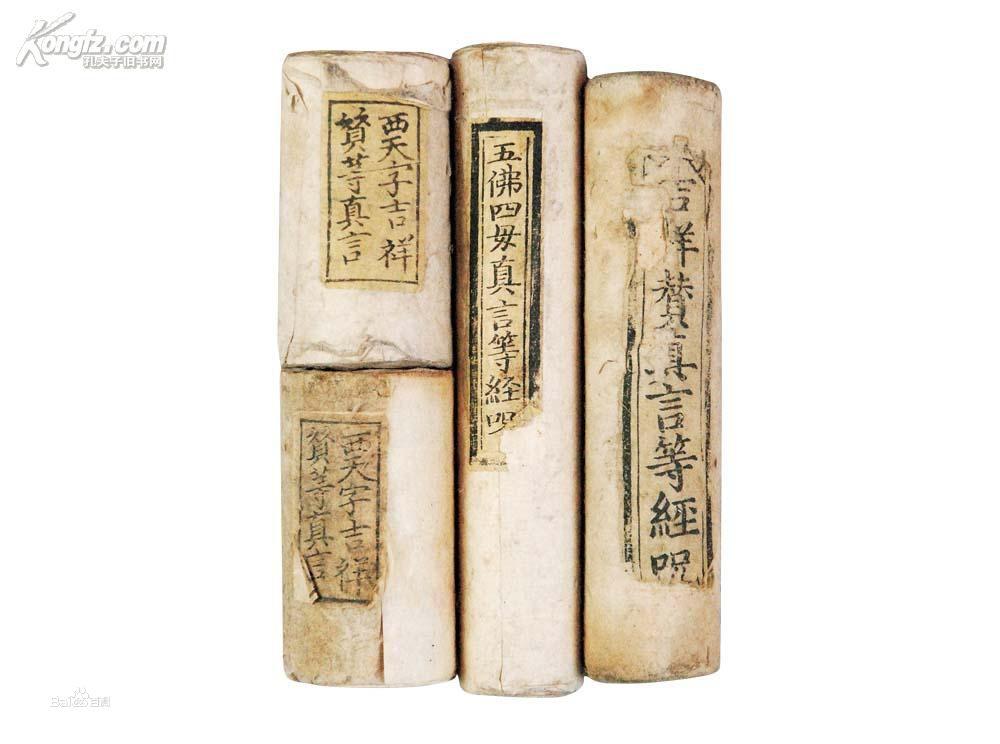 Kongfz.com
孔夫子旧书网
西天字吉祥
賛等真言
五佛四毋真言等經呪
吉祥賛真言等經呪
西天字吉祥
賛等真言
Baidu百科